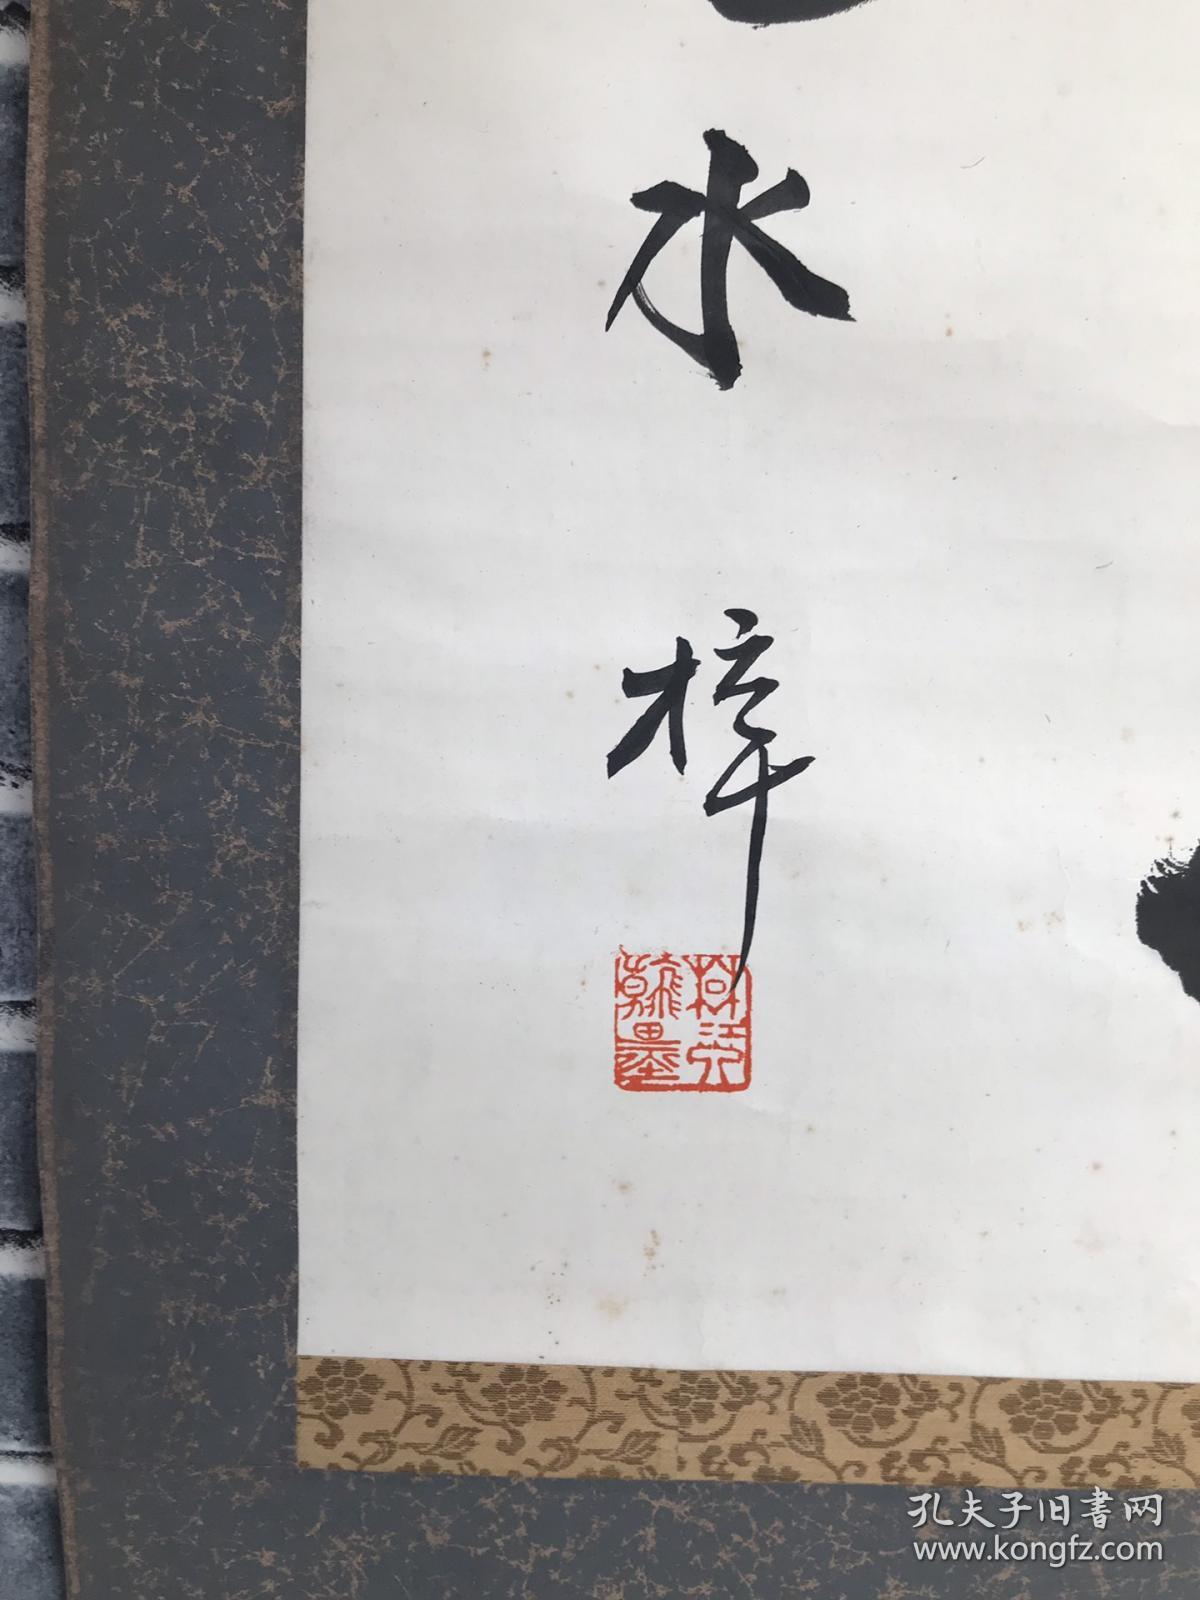 水
梓
翰墨
孔夫子旧書网
www.kongfz.com